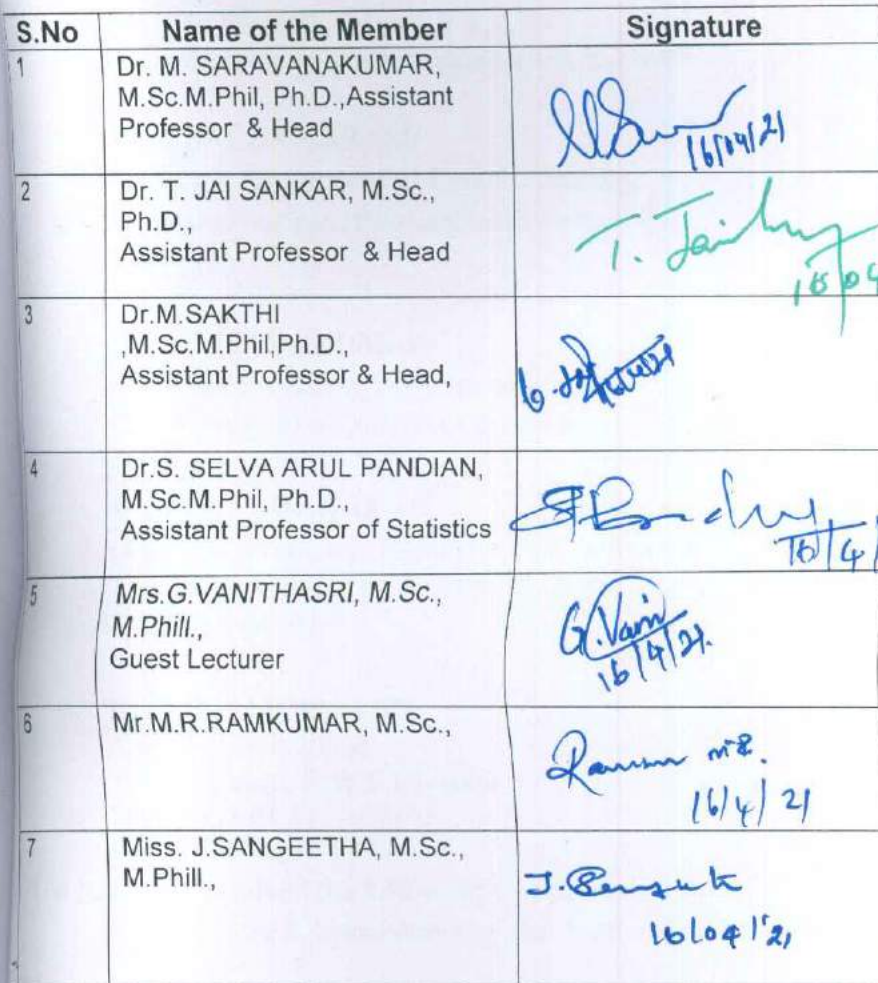 S.No Name of the Member Signature
1 Dr. M. SARAVANAKUMAR,
M.Sc.M.Phil, Ph.D.,Assistant
Professor & Head
16/04/21
2 Dr. T. JAI SANKAR, M.Sc.,
Ph.D.,
Assistant Professor & Head
T.
3 Dr.M.SAKTHI
,M.Sc.M.Phil,Ph.D.,
Assistant Professor & Head,
4 Dr.S. SELVA ARUL PANDIAN,
M.Sc.M.Phil, Ph.D.,
Assistant Professor of Statistics
16/4/
5 Mrs.G.VANITHASRI, M.Sc.,
M.Phill.,
Guest Lecturer
G.Vani
16/4/21.
6 Mr.M.R.RAMKUMAR, M.Sc.,
16/4/21
7 Miss. J.SANGEETHA, M.Sc.,
M.Phill.,
J.
16/04/'21